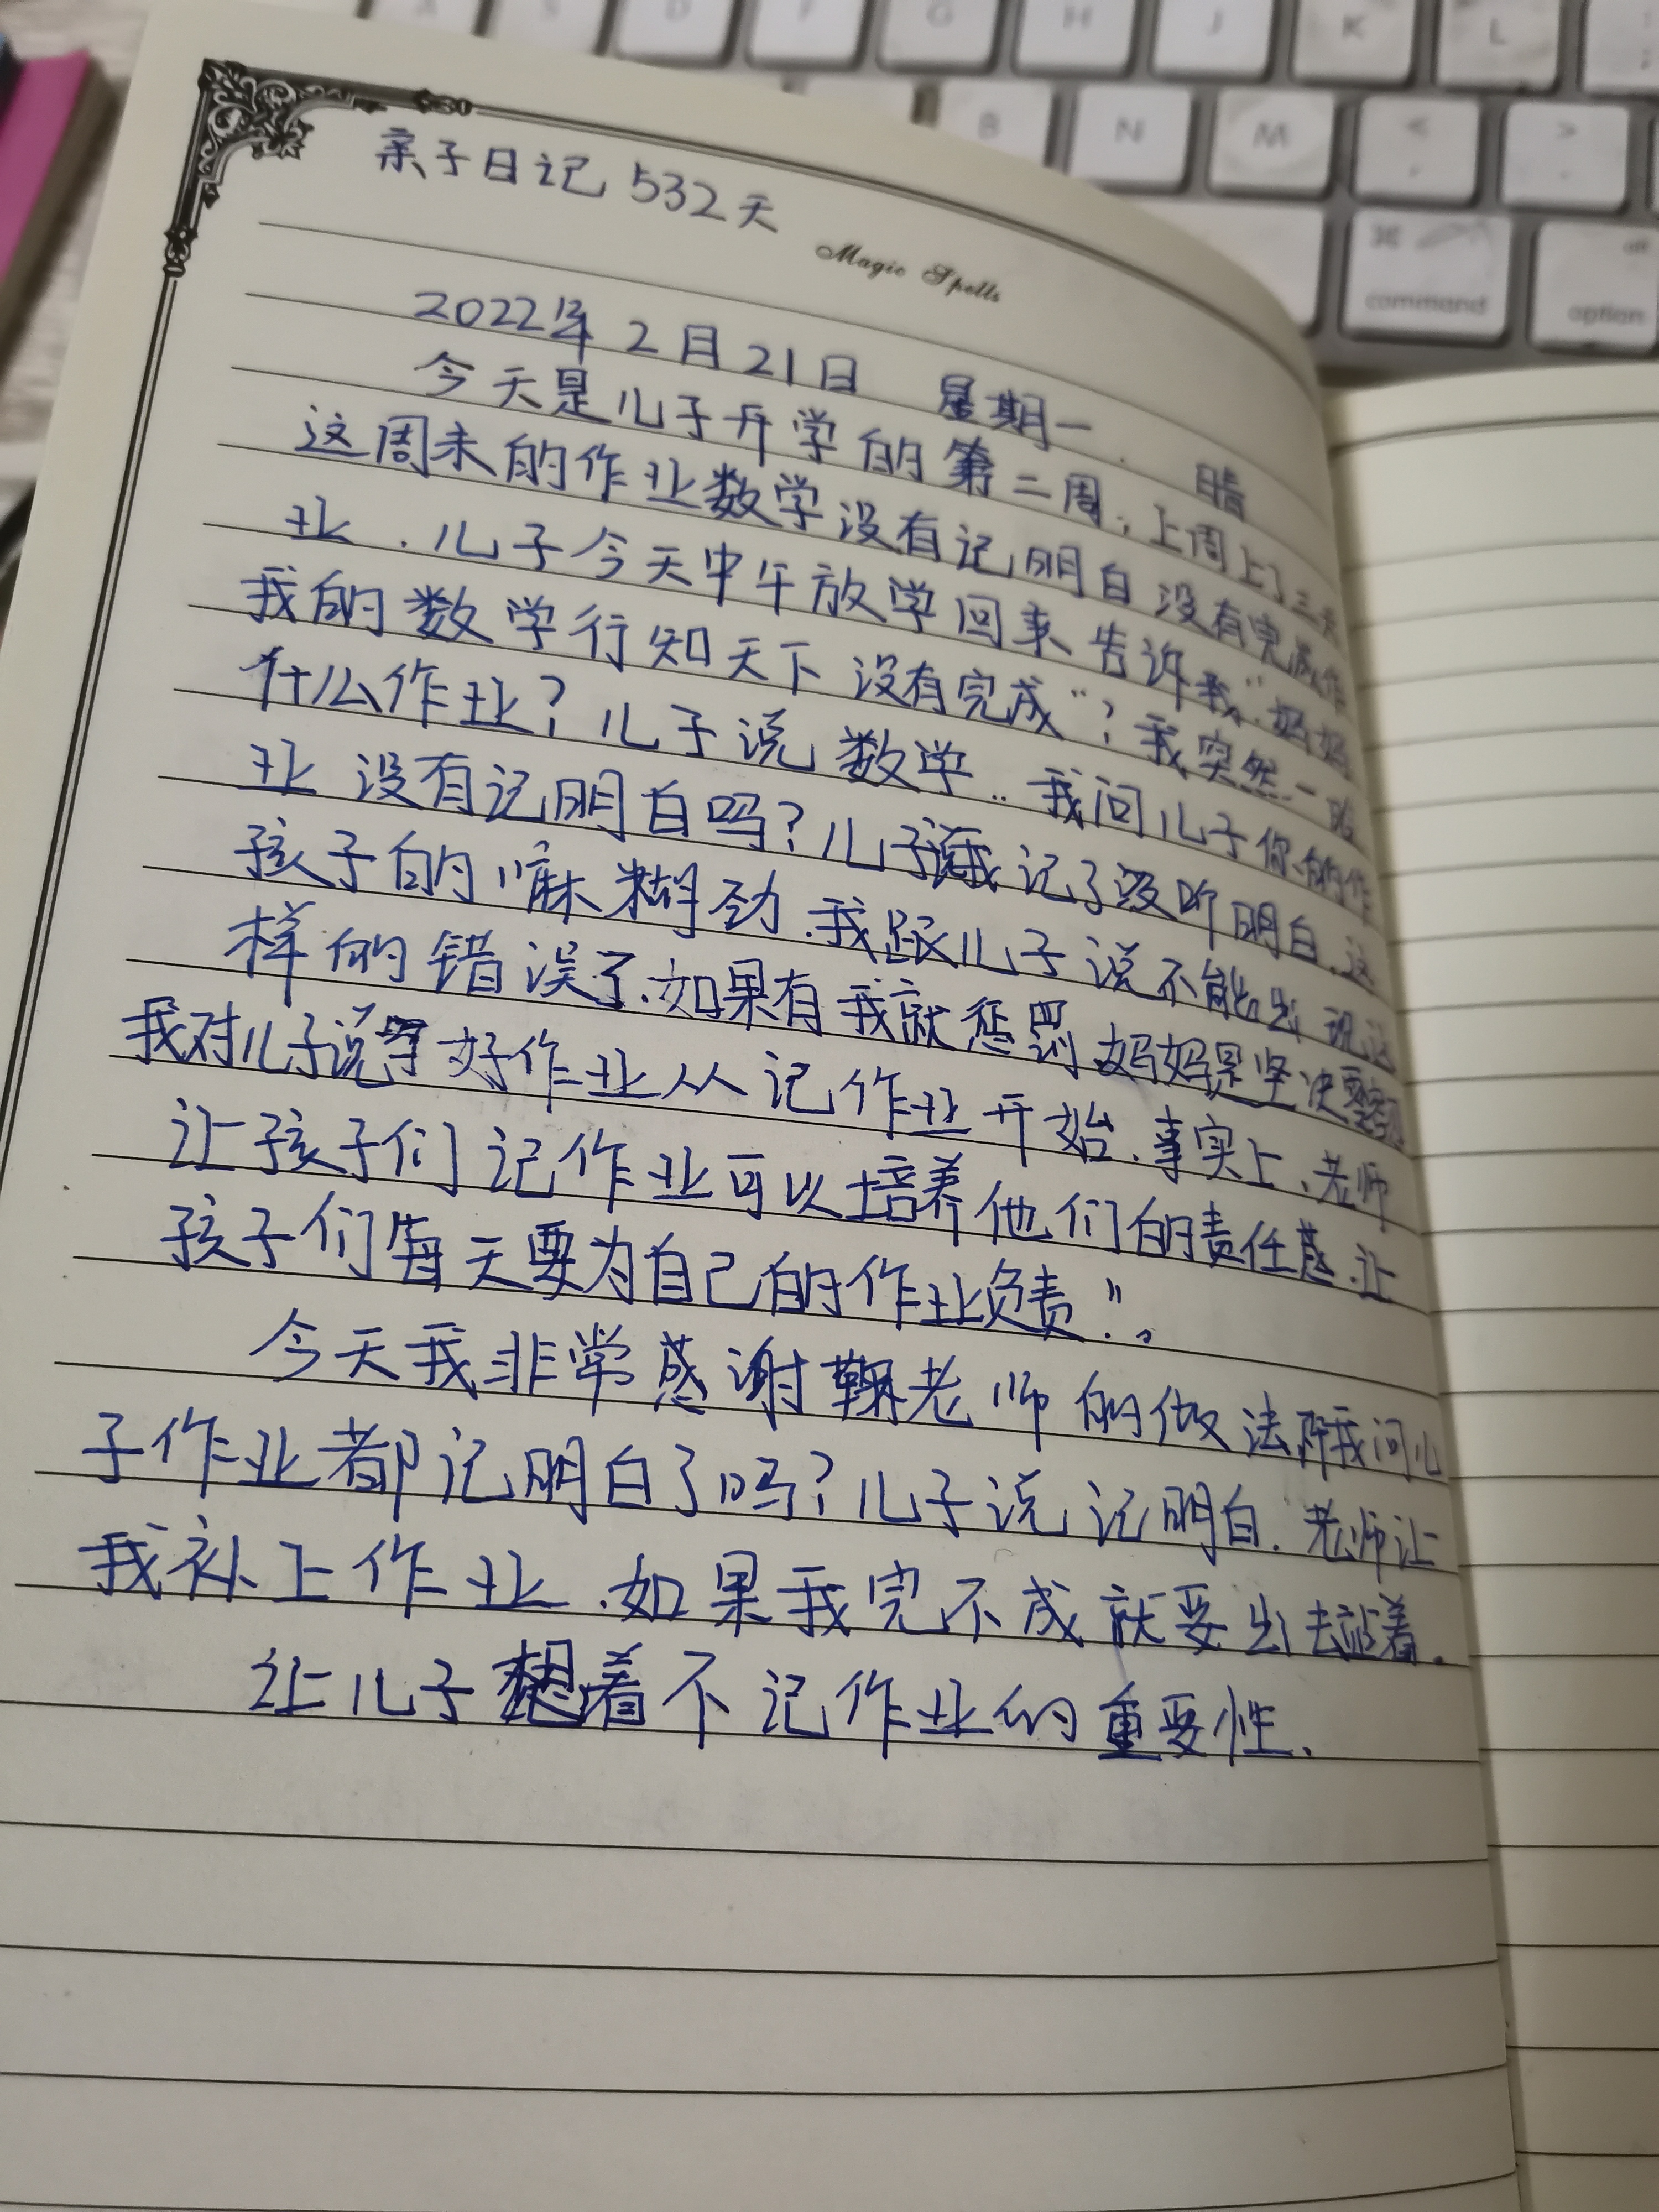 A S D F G H J K L
B N M < >
, .
⌘ alt
command option
亲子日记 532天
Magic Spells
2022年 2月21日 星期一 晴
今天是儿子开学的第二周,上周上了三天
这周末的作业数学没有记明白没有完成作
业.儿子今天中午放学回来告诉我“妈妈
我的数学行知天下没有完成”?我突然一
什么作业?儿子说数学..我问儿子你的作
业没有记明白吗?儿子说我记了没听明白.这
孩子的嘛糊劲.我跟儿子说不能出现这
样的错误了.如果有我就惩罚.妈妈是坚决要
我对儿子说写好作业从记作业开始.事实上、老师
让孩子们记作业可以培养他们的责任感.让
孩子们每天要为自己的作业负责.”。
今天我非常感谢鞠老师的做法.我问儿
子作业都记明白了吗?儿子说记明白.老师让
我补上作业.如果我完不成就要出去站着.
让儿子想着不记作业的重要性.